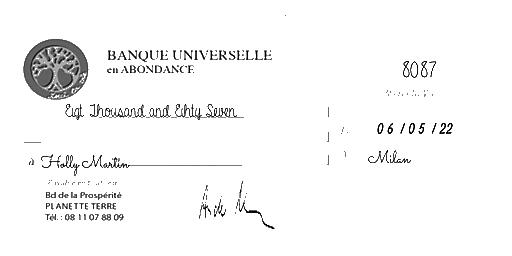 BANQUE UNIVERSELLE
en ABONDANCE
8087
Eigt Thousand and Eihty Seven
06/05/22
à Holly Martin
Milan
Bd de la Prospérité
PLANETTE TERRE
Tél. : 08 11 07 88 09